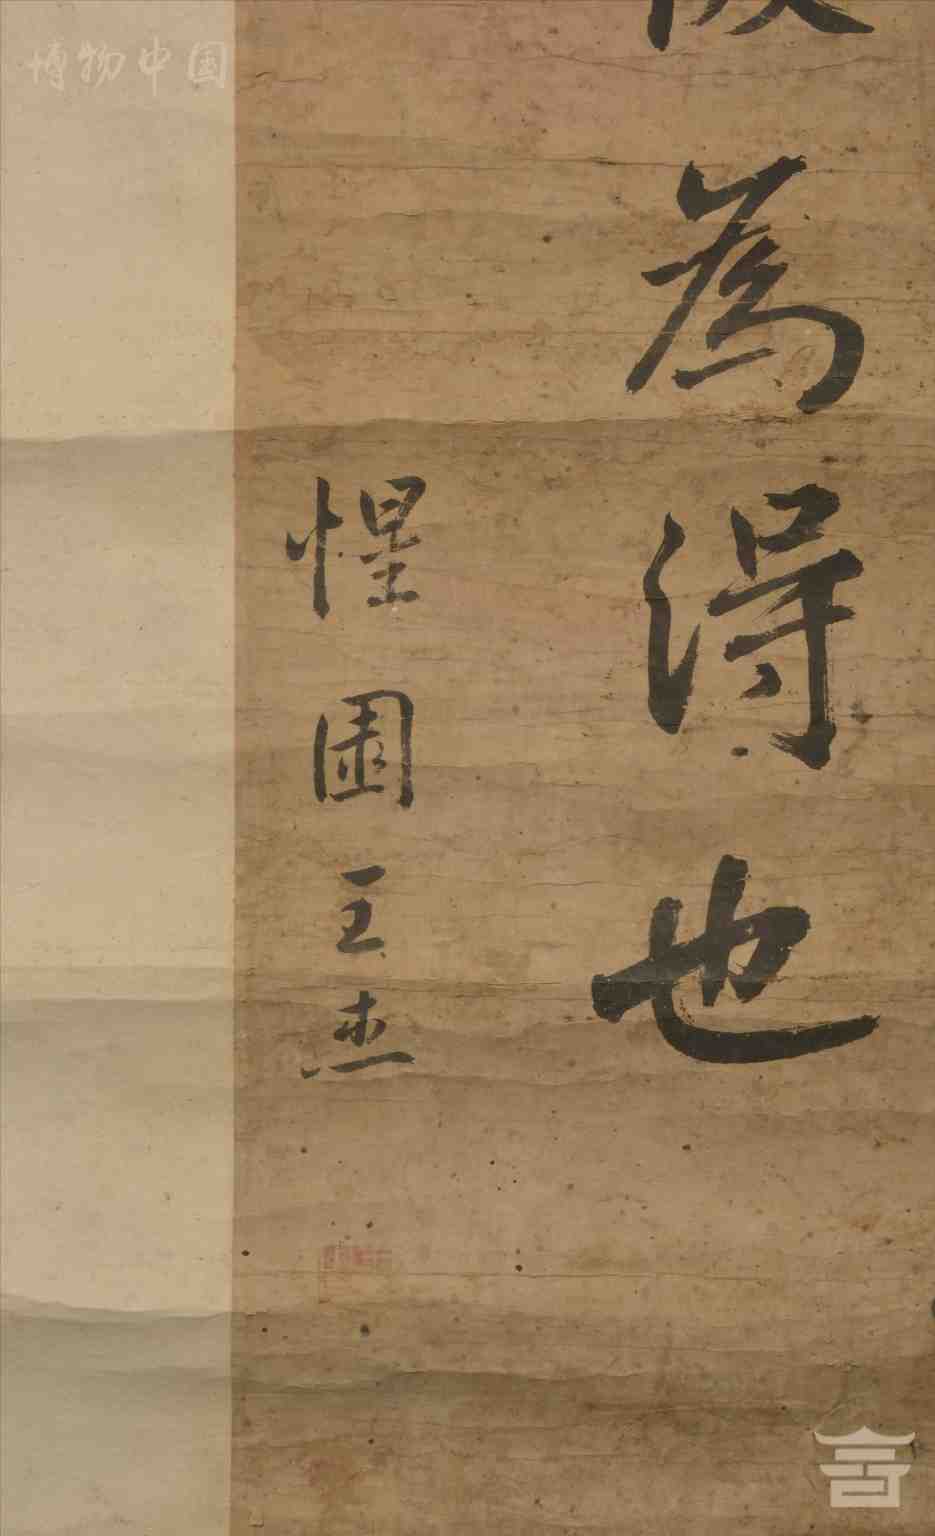 為得也
惺園王杰
博物中国